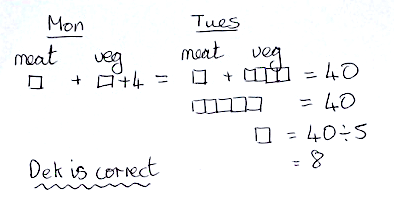 Mon Tues
meat veg meat veg
□ + □+4 = □ + □□□ = 40
□□□□□ = 40
□ = 40÷5
= 8
Dek is correct